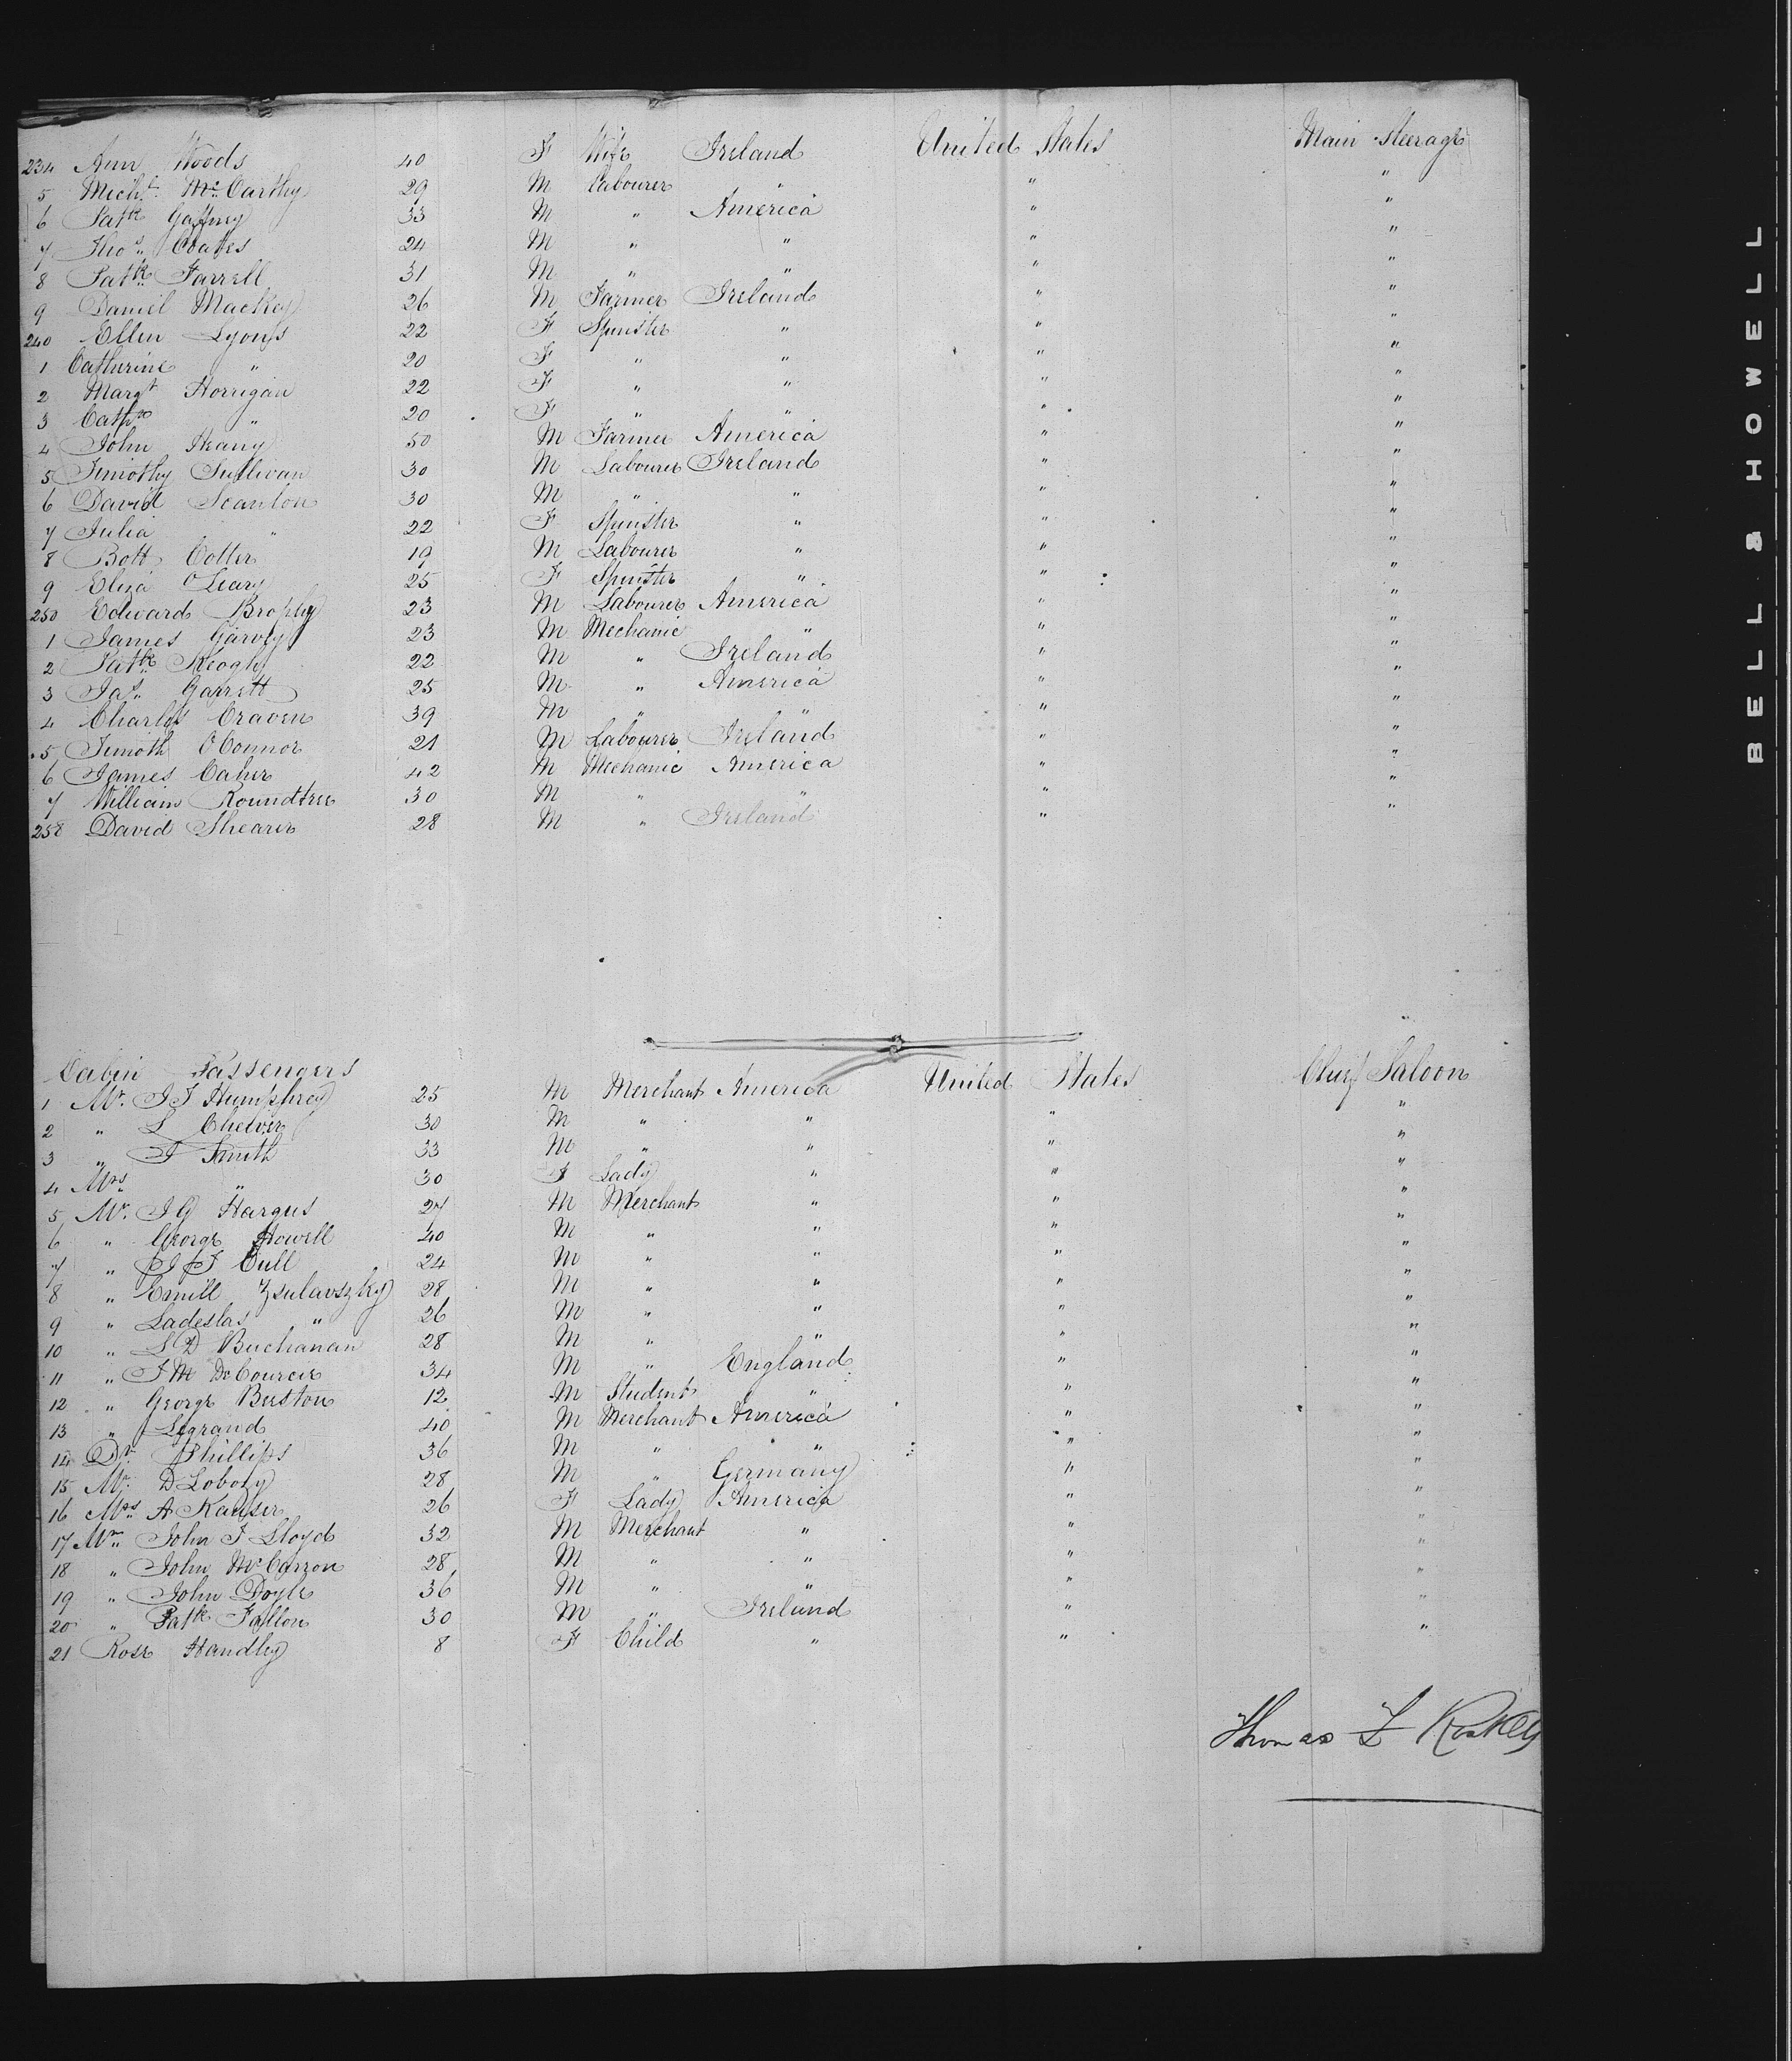 234 Ann Woods 40 F Wife Ireland United States Main Steerage
5 Mich.l McCarthy 29 M Labourer " " "
6 Patk Gaffney 33 M " America " "
7 Thos. Coates 24 M " " " "
8 Patk Farrell 31 M " " " "
9 Daniel Mackey 26 M Farmer Ireland " "
240 Ellen Lyons 22 F Spinster " " "
1 Catherine " 20 F " " " "
2 Margt Horrigan 22 F " " " "
3 Cathne " 20 F " " " "
4 John Heany 50 M Farmer America " "
5 Timothy Sullivan 30 M Labourer Ireland " "
6 David Scanlon 30 M " " " "
7 Julia " 22 F Spinster " " "
8 Bott Cotter 19 M Labourer " " "
9 Eliza O'Leary 25 F Spinster " " "
250 Edward Brophy 23 M Labourer America " "
1 James Garvey 23 M Mechanic " " "
2 Patk Keogh 22 M " Ireland " "
3 Jas. Garrett 25 M " America " "
4 Charles Craven 39 M " " " "
5 Timoth O'Connor 21 M Labourer Ireland " "
6 James Caher 42 M Mechanic America " "
7 William Roundtree 30 M " " " "
258 David Shearer 28 M " Ireland " "
Cabin Passengers
1 Mr. J F Humphrey 25 M Merchant America United States Chief Saloon
2 " L Chelvier 30 M " " " "
3 " J Smith 33 M " " " "
4 Mrs " 30 F Lady " " "
5 Mr. J G Hargus 27 M Merchant " " "
6 " George Howell 40 M " " " "
7 " J F Cull 24 M " " " "
8 " Emill Zsulavszky 28 M " " " "
9 " Ladeslas " 26 M " " " "
10 " L D Buchanan 28 M " " " "
11 " J M DeCourcir 34 M " England " "
12 " George Burston 12 M Student " " "
13 " Legrand 40 M Merchant America " "
14 Dr. Phillips 36 M " " " "
15 Mr. D Lobozy 28 M " Germany " "
16 Mrs. A Kauser 26 F Lady America " "
17 Mr. John F Lloyd 32 M Merchant " " "
18 " John McCarron 28 M " " " "
19 " John Doyle 36 M " " " "
20 " Patk Fallon 30 M " Ireland " "
21 Rose Handley 8 F Child " " "
Thomas
BELL & HOWELL